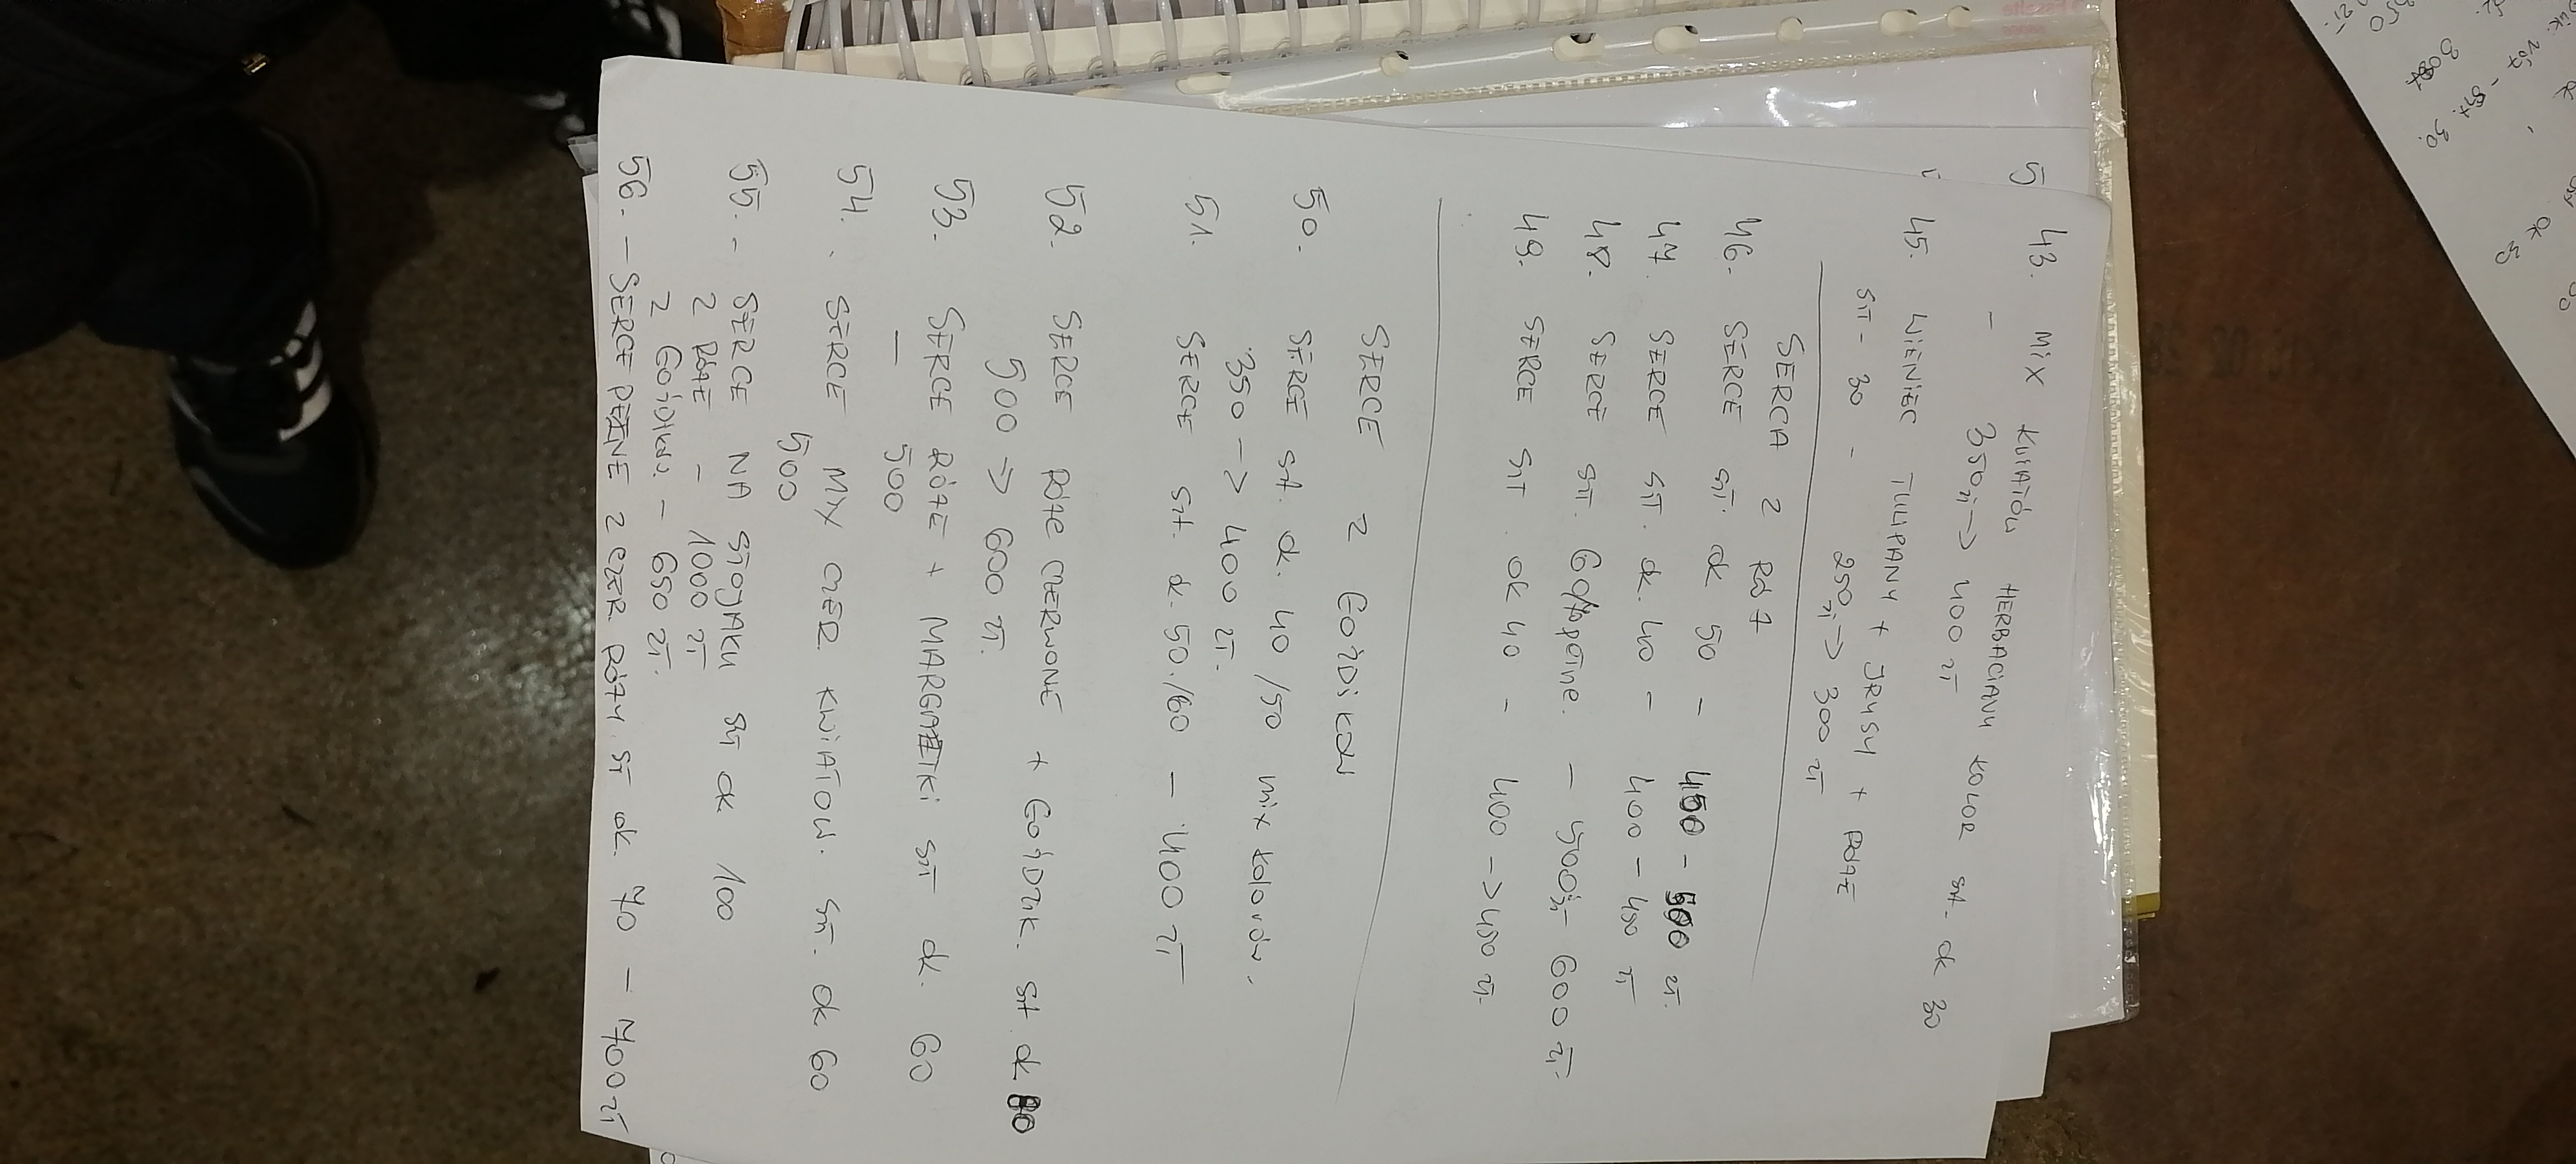 ok 30
róż - szt. 30.
350
zł.
5
43. MiX KWIATÓW HERBACIANY KOLOR szt. ok 30
- 350 zł -> 400 zł
45. WIENIEC TULIPANY + IRYSY + RÓŻE
SZT - 30 - 250 zł -> 300 zł
SERCA Z RÓŻ
46. SERCE SZT. ok 50 - 450 - 500 zł.
47. SERCE SZT. ok. 40 - 400 - 450 zł
48. SERCE SZT. 60/70 pełne. - 500 zł - 600 zł.
49. SERCE SZT ok 40 - 400 -> 450 zł.
SERCE Z GOŹDIKOW
50. SERCE szt. ok. 40 /50 mix kolorów.
350 -> 400 zł.
51. SERCE szt. ok. 50./60 - 400 zł
52. SERCE RÓŻE CZERWONE + GOŹDZIK. szt ok 80
500 -> 600 zł.
53. SERCE RÓŻE + MARGARETKI SZT ok. 60
- 500
54. SERCE MIX CZER. KWIATOW. SZT. ok 60
500
55. - SERCE NA STOJAKU SZT ok 100
Z RÓŻE - 1000 zł
Z GOŹDIKOW. - 650 zł.
56. - SERCE PEŁNE Z CZER. RÓŻY SZT ok. 70 - 700 zł